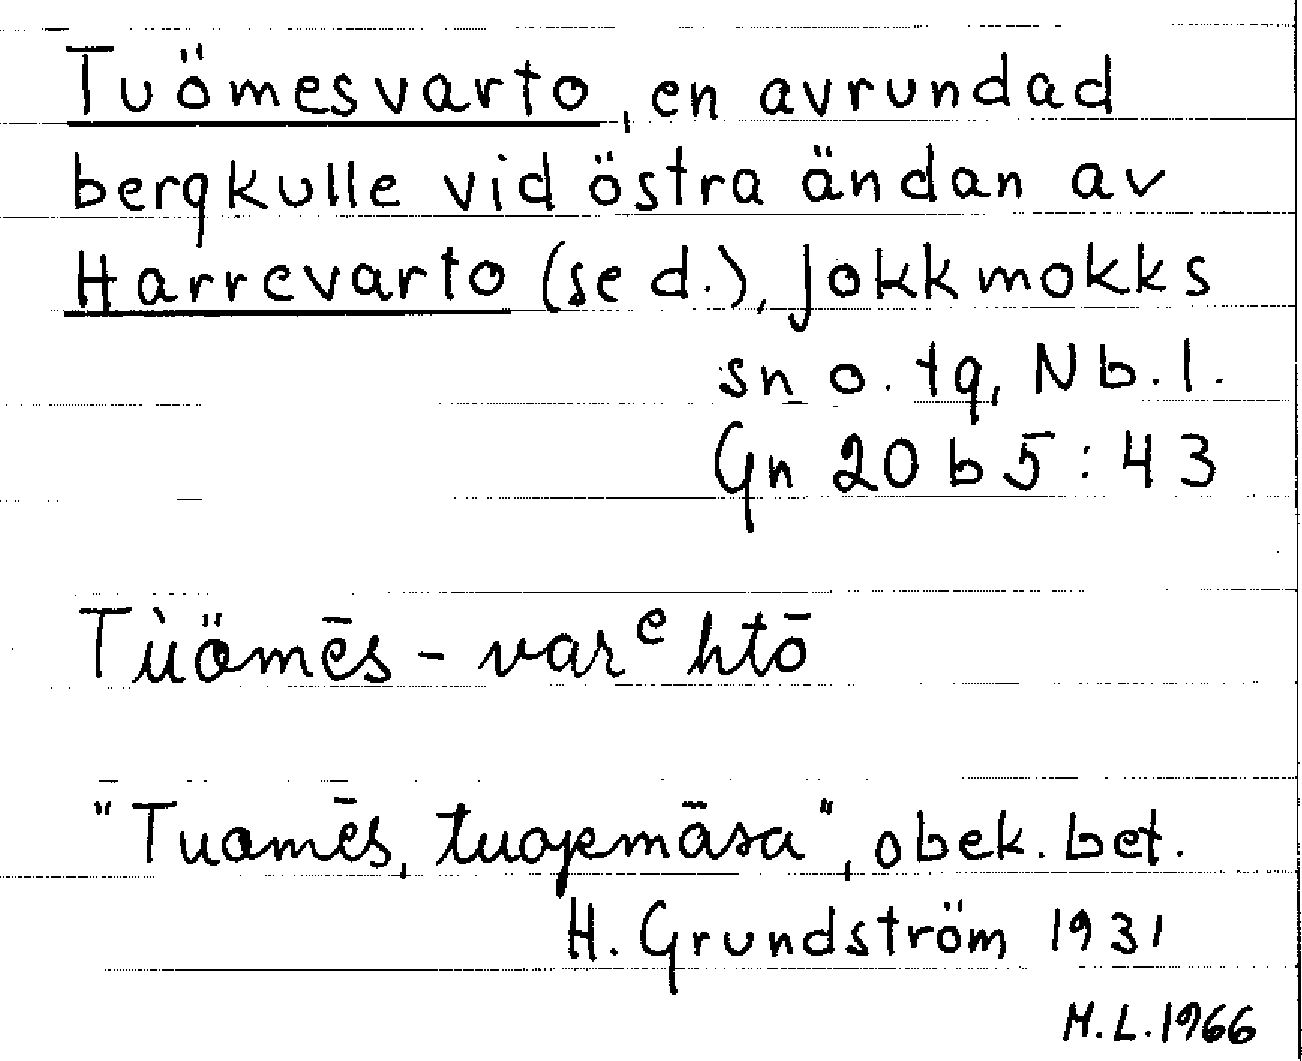 Tuömesvarto, en avrundad
bergkulle vid östra ändan av
Harrevarto (se d.), Jokkmokks
sn o. tg, Nb. l.
Gn 20 b 5 : 43
Tùömēs - varᵉhtō
"Tuamēs, tuopmāsa", obek. bet.
H. Grundström 1931
M.L. 1966